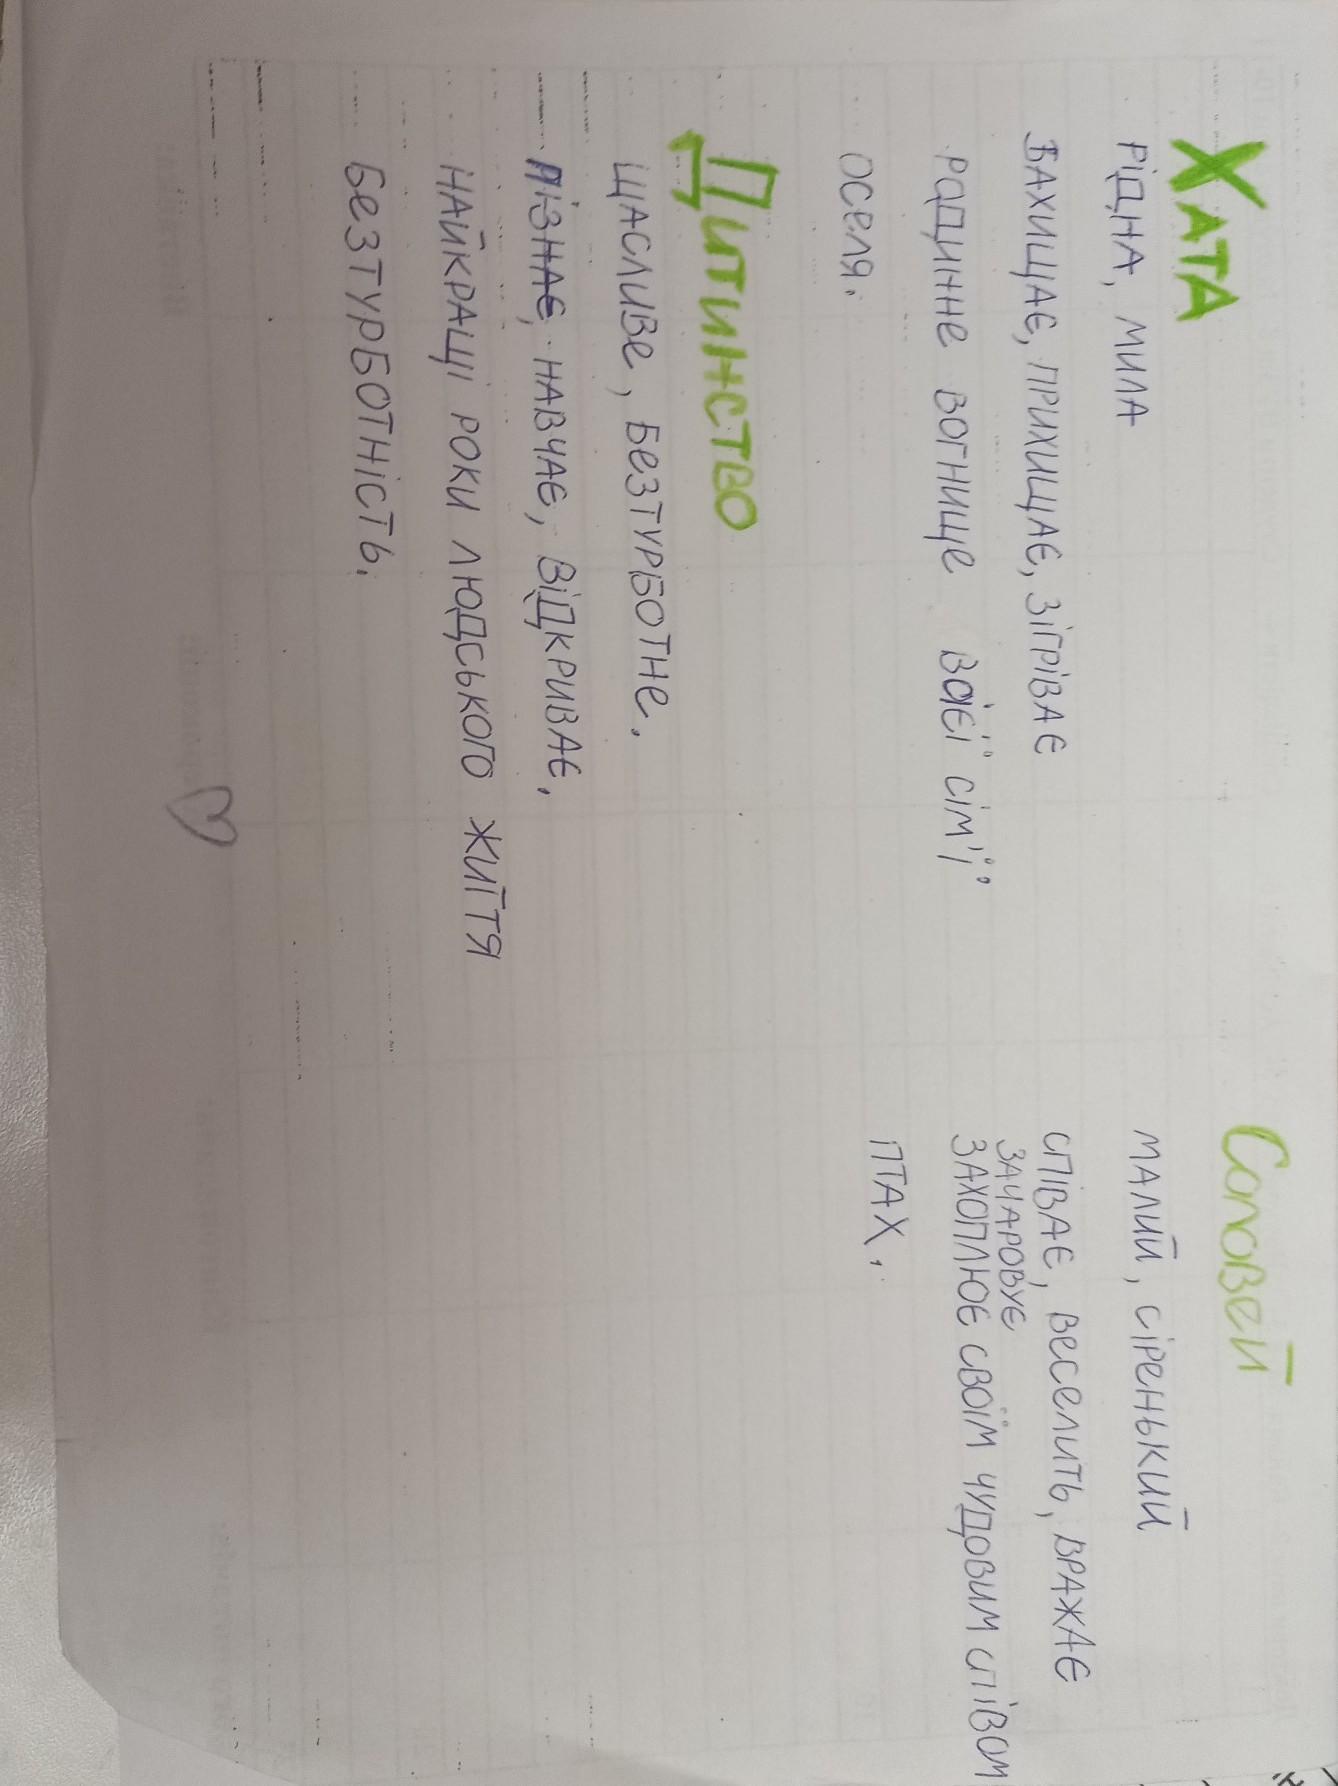 ХАТА
РІДНА, МИЛА
ЗАХИЩАЄ, ПРИХИЩАЄ, ЗІГРІВАЄ
РОДИННЕ ВОГНИЩЕ СІМ'Ї.
ОСЕЛЯ.
ДИТИНСТВО
ЩАСЛИВЕ, БЕЗТУРБОТНЕ.
ПІЗНАЄ, НАВЧАЄ, ВІДКРИВАЄ,
НАЙКРАЩІ РОКИ ЛЮДСЬКОГО ЖИТТЯ
БЕЗТУРБОТНІСТЬ.
СОЛОВЕЙ
МАЛИЙ, СІРЕНЬКИЙ
СПІВАЄ, ВЕСЕЛИТЬ, ВРАЖАЄ
ЗАЧАРОВУЄ
ЗАХОПЛЮЄ СВОЇМ ЧУДОВИМ СПІВОМ
ПТАХ.